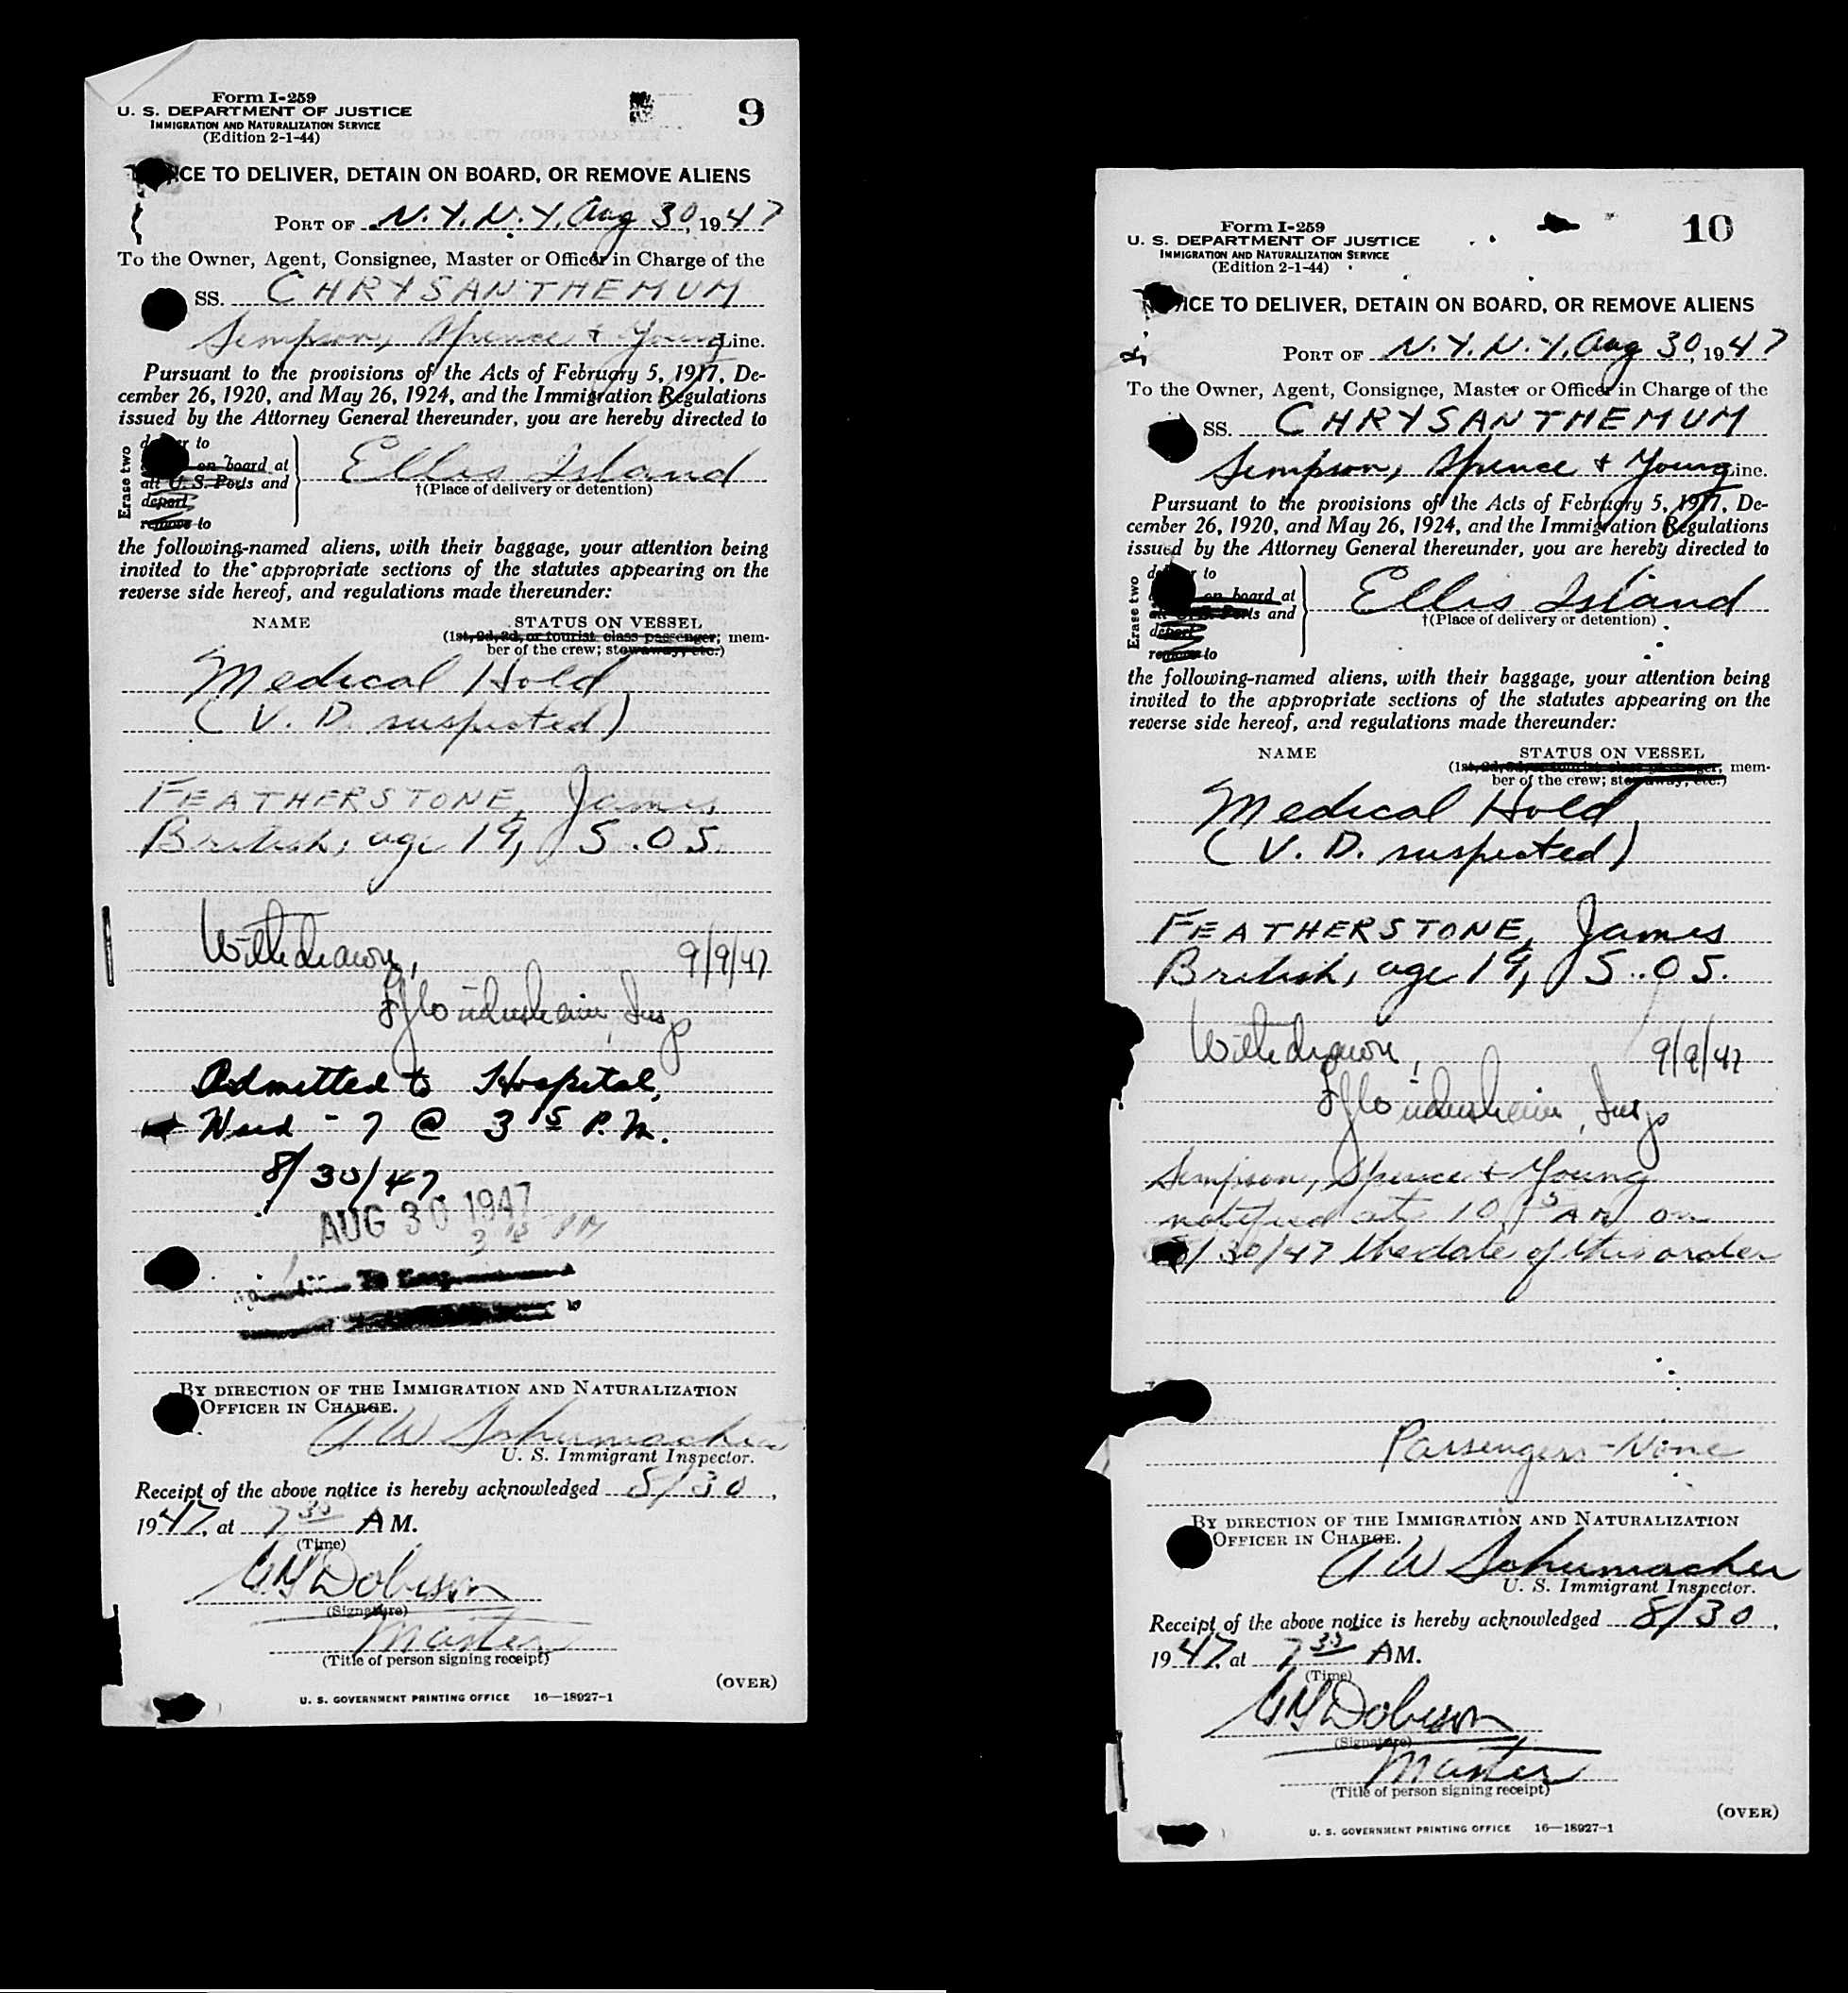 Form I-259
U. S. DEPARTMENT OF JUSTICE
IMMIGRATION AND NATURALIZATION SERVICE
(Edition 2-1-44)
9
CE TO DELIVER, DETAIN ON BOARD, OR REMOVE ALIENS
PORT OF N. Y. N. Y. Aug 30, 1947
To the Owner, Agent, Consignee, Master or Officer in Charge of the
SS. CHRYSANTHEMUM
Simpson, Spence + Young Line.
Pursuant to the provisions of the Acts of February 5, 1917, De-
cember 26, 1920, and May 26, 1924, and the Immigration Regulations
issued by the Attorney General thereunder, you are hereby directed to
Erase two
to
on board at
all U. S. Ports and
deport
remove to
Ellis Island
†(Place of delivery or detention)
the following-named aliens, with their baggage, your attention being
invited to the appropriate sections of the statutes appearing on the
reverse side hereof, and regulations made thereunder:
NAME STATUS ON VESSEL
(1st, 2d, 3d, or tourist class passenger; mem-
ber of the crew; stowaway, etc.)
Medical Hold
(V. D. suspected)
FEATHERSTONE, James
British, age 19, S.O.S.
Withdrawn, 9/9/47
Insp
Admitted to Hospital,
- 7 @ 3 15 P.M.
8/30/47
AUG 30 1947
3 15 PM
BY DIRECTION OF THE IMMIGRATION AND NATURALIZATION
OFFICER IN CHARGE.
A W Schumacher
U. S. Immigrant Inspector.
Receipt of the above notice is hereby acknowledged 8/30,
1947, at 7 30 AM.
(Time)
Dobson
(Signature)
Master
(Title of person signing receipt)
(OVER)
U. S. GOVERNMENT PRINTING OFFICE 16—18927-1
Form I-259
U. S. DEPARTMENT OF JUSTICE
IMMIGRATION AND NATURALIZATION SERVICE
(Edition 2-1-44)
10
ICE TO DELIVER, DETAIN ON BOARD, OR REMOVE ALIENS
PORT OF N. Y. N. Y. Aug 30, 1947
To the Owner, Agent, Consignee, Master or Officer in Charge of the
SS. CHRYSANTHEMUM
Simpson, Spence + Young Line.
Pursuant to the provisions of the Acts of February 5, 1917, De-
cember 26, 1920, and May 26, 1924, and the Immigration Regulations
issued by the Attorney General thereunder, you are hereby directed to
Erase two
to
on board at
all U. S. Ports and
deport
remove to
Ellis Island
†(Place of delivery or detention)
the following-named aliens, with their baggage, your attention being
invited to the appropriate sections of the statutes appearing on the
reverse side hereof, and regulations made thereunder:
NAME STATUS ON VESSEL
(1st, 2d, 3d, or tourist class passenger; mem-
ber of the crew; stowaway, etc.)
Medical Hold
(V. D. suspected)
FEATHERSTONE, James
British, age 19, S.O.S.
Withdrawn, 9/9/47
Insp
Simpson, Spence + Young
notified at 10 15 AM on
8/30/47 the date of this order
Passengers - None
BY DIRECTION OF THE IMMIGRATION AND NATURALIZATION
OFFICER IN CHARGE.
A W Schumacher
U. S. Immigrant Inspector.
Receipt of the above notice is hereby acknowledged 8/30,
1947, at 7 30 AM.
(Time)
Dobson
(Signature)
Master
(Title of person signing receipt)
(OVER)
U. S. GOVERNMENT PRINTING OFFICE 16—18927-1